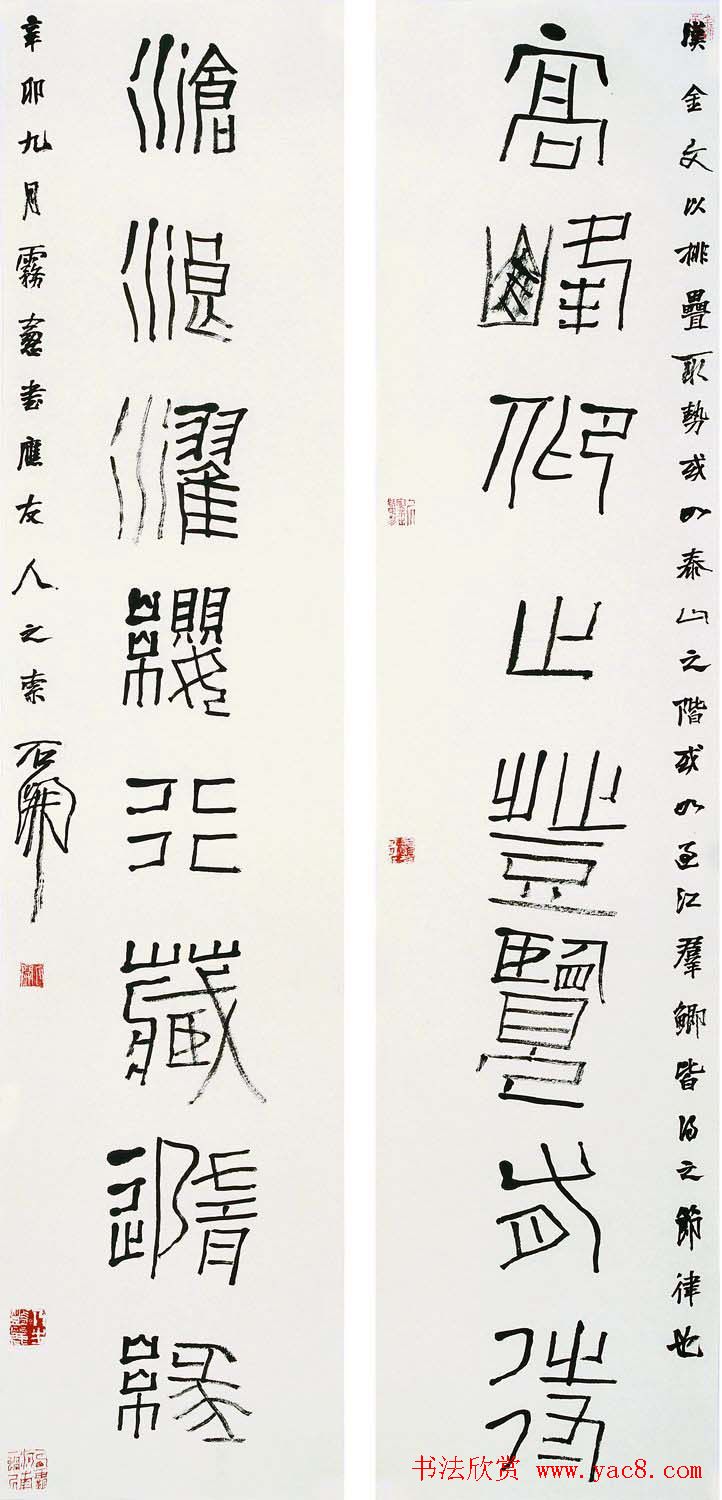 漢金文以排疊取勢或如泰山之階或如過江羣鯽皆得之節律也
高峰仰止登覽有待
滄浪濯纓行藏隨緣
辛卯九月霧窻書應友人之索
石開
书法欣赏 www.yac8.com